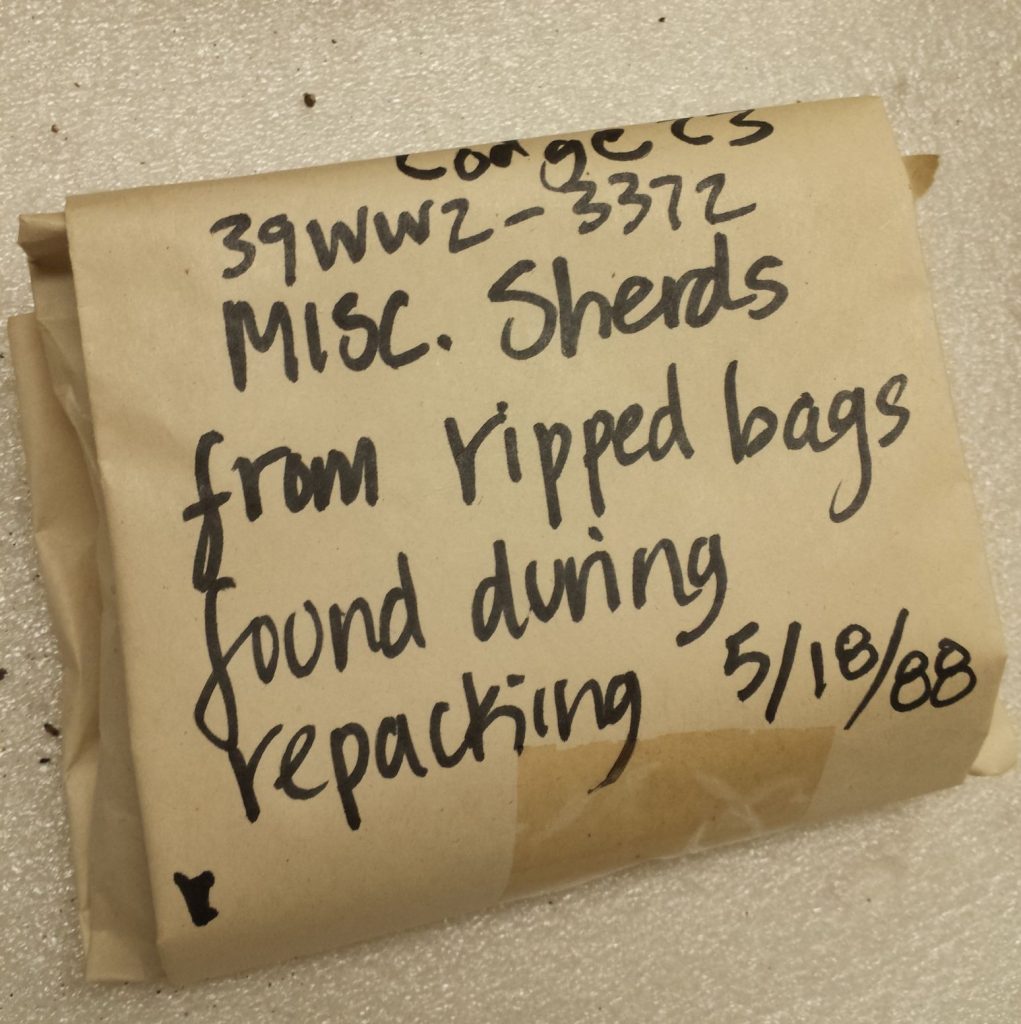 39WW2-3372
MISC. Sherds
from ripped bags
found during
repacking 5/18/88